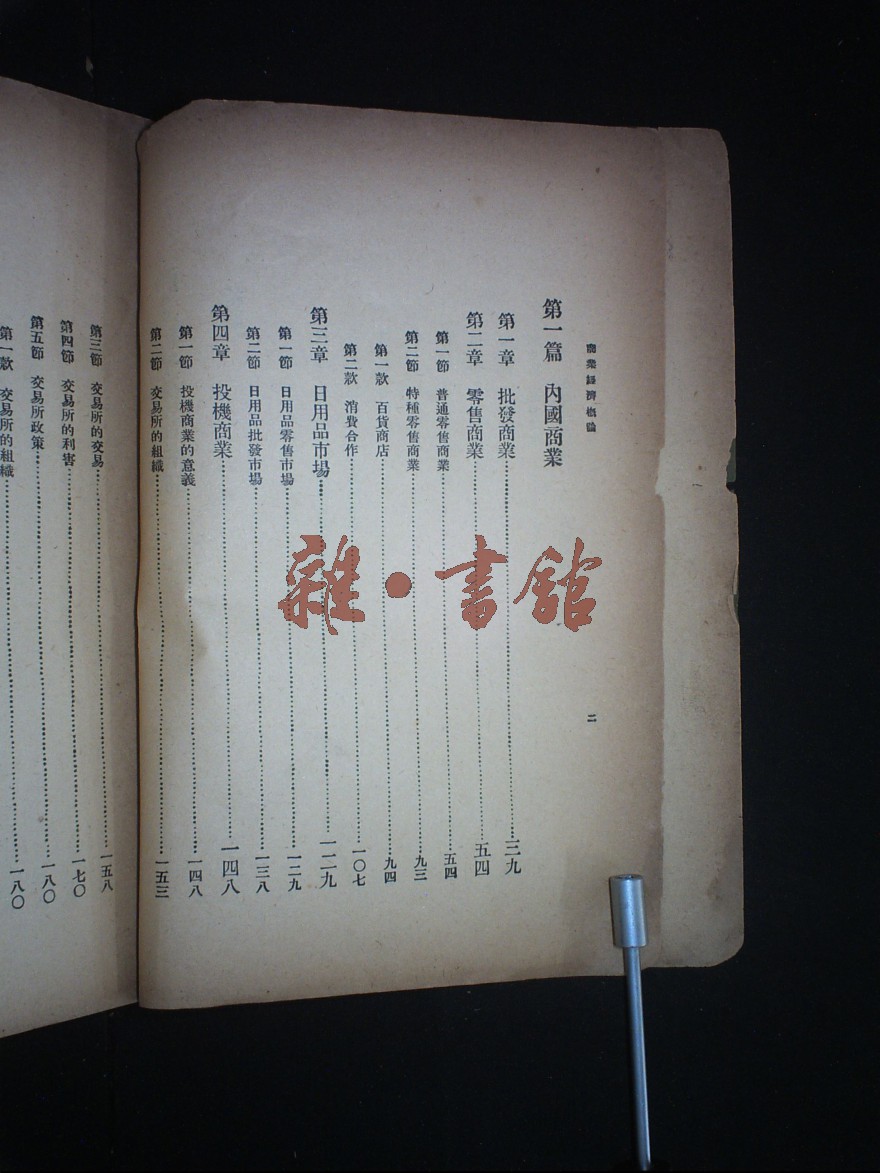 商業經濟概論
二
第一篇 內國商業
第一章 批發商業………三九
第二章 零售商業………五四
第一節 普通零售商業………五四
第二節 特種零售商業………九三
第一款 百貨商店………九四
第二款 消費合作………一〇七
第三章 日用品市場………一二九
第一節 日用品零售市場………一二九
第二節 日用品批發市場………一三八
第四章 投機商業………一四八
第一節 投機商業的意義………一四八
第二節 交易所的組織………一五三
第三節 交易所的交易………一五八
第四節 交易所的利害………一七〇
第五節 交易所政策………一八〇
第一款 交易所的組織………一八〇
雜·書館